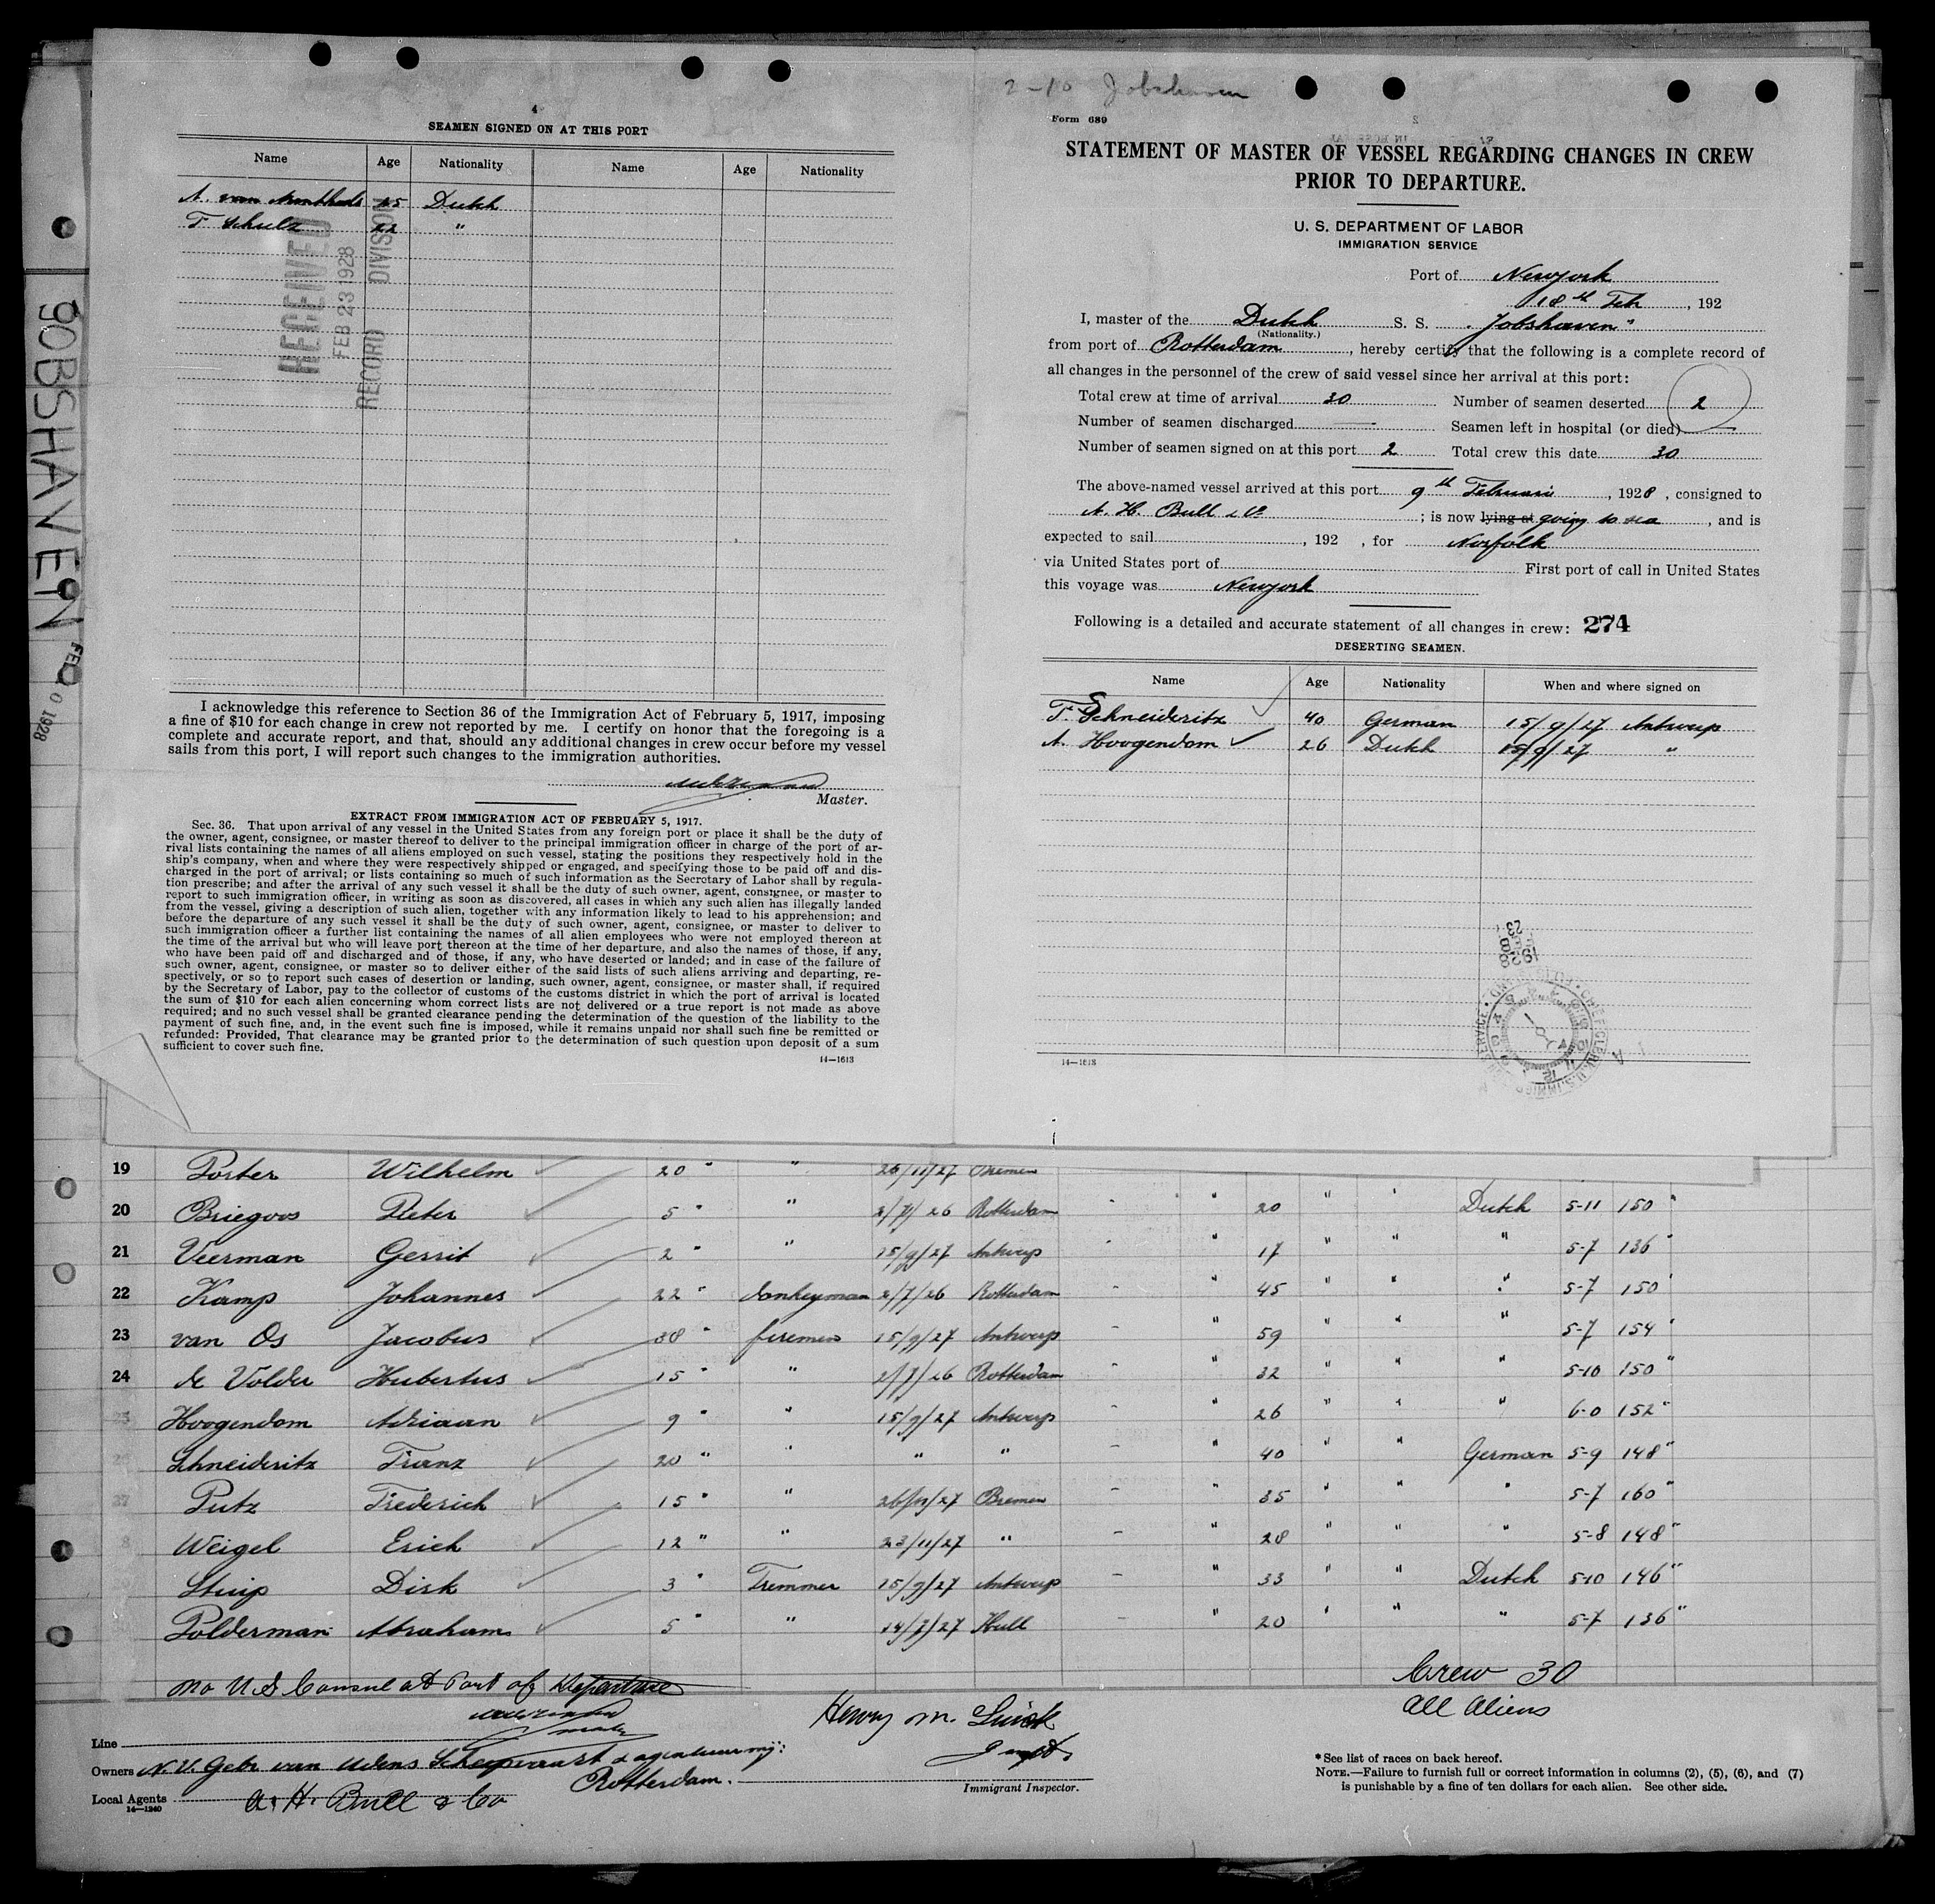 4
SEAMEN SIGNED ON AT THIS PORT
Name Age Nationality Name Age Nationality
A. van 25 Dutch
F Schulz 22 "
RECEIVED
FEB 23 1928
RECORD DIVISION
I acknowledge this reference to Section 36 of the Immigration Act of February 5, 1917, imposing
a fine of $10 for each change in crew not reported by me. I certify on honor that the foregoing is a
complete and accurate report, and that, should any additional changes in crew occur before my vessel
sails from this port, I will report such changes to the immigration authorities.
Master.
EXTRACT FROM IMMIGRATION ACT OF FEBRUARY 5, 1917.
Sec. 36. That upon arrival of any vessel in the United States from any foreign port or place it shall be the duty of
the owner, agent, consignee, or master thereof to deliver to the principal immigration officer in charge of the port of ar-
rival lists containing the names of all aliens employed on such vessel, stating the positions they respectively hold in the
ship's company, when and where they were respectively shipped or engaged, and specifying those to be paid off and dis-
charged in the port of arrival; or lists containing so much of such information as the Secretary of Labor shall by regula-
tion prescribe; and after the arrival of any such vessel it shall be the duty of such owner, agent, consignee, or master to
report to such immigration officer, in writing as soon as discovered, all cases in which any such alien has illegally landed
from the vessel, giving a description of such alien, together with any information likely to lead to his apprehension; and
before the departure of any such vessel it shall be the duty of such owner, agent, consignee, or master to deliver to
such immigration officer a further list containing the names of all alien employees who were not employed thereon at
the time of the arrival but who will leave port thereon at the time of her departure, and also the names of those, if any,
who have been paid off and discharged and of those, if any, who have deserted or landed; and in case of the failure of
such owner, agent, consignee, or master so to deliver either of the said lists of such aliens arriving and departing, re-
spectively, or so to report such cases of desertion or landing, such owner, agent, consignee, or master shall, if required
by the Secretary of Labor, pay to the collector of customs of the customs district in which the port of arrival is located
the sum of $10 for each alien concerning whom correct lists are not delivered or a true report is not made as above
required; and no such vessel shall be granted clearance pending the determination of the question of the liability to the
payment of such fine, and, in the event such fine is imposed, while it remains unpaid nor shall such fine be remitted or
refunded: Provided, That clearance may be granted prior to the determination of such question upon deposit of a sum
sufficient to cover such fine.
14—1613
2-10 Jobshaven
Form 689
STATEMENT OF MASTER OF VESSEL REGARDING CHANGES IN CREW
PRIOR TO DEPARTURE.
U. S. DEPARTMENT OF LABOR
IMMIGRATION SERVICE
Port of Newyork
18th Feb , 192
I, master of the Dutch S. S. "Jobshaven"
(Nationality.)
from port of Rotterdam , hereby certify that the following is a complete record of
all changes in the personnel of the crew of said vessel since her arrival at this port:
Total crew at time of arrival 30 Number of seamen deserted 2
Number of seamen discharged — Seamen left in hospital (or died) —
Number of seamen signed on at this port 2 Total crew this date 30
The above-named vessel arrived at this port 9th Februari , 1928 , consigned to
A. H. Bull & Co ; is now lying at going to sea , and is
expected to sail , 192 , for Norfolk
via United States port of First port of call in United States
this voyage was Newyork
Following is a detailed and accurate statement of all changes in crew: 274
DESERTING SEAMEN.
Name Age Nationality When and where signed on
F. Schneideritz 40 German 15/9/27 Antwerp
A. Hoogendam 26 Dutch 15/9/27 "
14—1613
JOBSHAVEN
FEB 10 1928
19 Porter Wilhelm 20 " " 26/11/27 Bremen
20 Briegoos Pieter 5 " " 2/7/26 Rotterdam - " 20 " " Dutch 5-11 150 "
21 Veerman Gerrit 2 " " 15/9/27 Antwerp - " 17 " " " 5-7 136 "
22 Kamp Johannes 22 " donkeyman 2/7/26 Rotterdam - " 45 " " " 5-7 150 "
23 van Os Jacobus 38 " firemen 15/9/27 Antwerp - " 59 " " " 5-7 154 "
24 de Volder Hubertus 15 " " 2/7/26 Rotterdam - " 32 " " " 5-10 150 "
25 Hoogendam Adriaan 9 " " 15/9/27 Antwerp - " 26 " " " 6-0 152 "
Schneideritz Franz 20 " " " " - " 40 " " German 5-9 148 "
27 Putz Frederich 15 " " 26/11/27 Bremen - " 35 " " " 5-7 160 "
8 Weigel Erich 12 " " 23/11/27 " - " 28 " " " 5-8 148 "
Stuip Dirk 3 " Tremmer 15/9/27 Antwerp - " 33 " " Dutch 5-10 146 "
Polderman Abraham 5 " " 14/7/27 Hull - " 20 " " " 5-7 136 "
No U S Consul at Port of Departure
Crew 30
All Aliens
Henry M.
Line
Owners N. V. Gebr van Udens Scheepvaart & agentuur mij:
Rotterdam.
Local Agents A. H. Bull & Co
14—1240
Immigrant Inspector.
* See list of races on back hereof.
NOTE.—Failure to furnish full or correct information in columns (2), (5), (6), and (7)
is punishable by a fine of ten dollars for each alien. See other side.